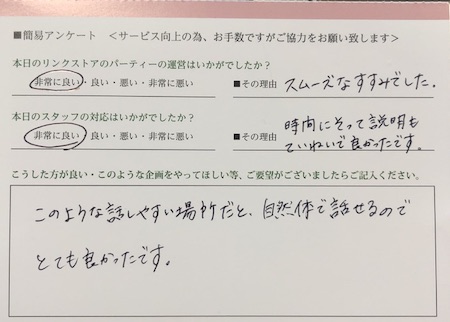 ■簡易アンケート ＜サービス向上の為、お手数ですがご協力をお願い致します＞
本日のリンクストアのパーティーの運営はいかがでしたか？
非常に良い・良い・悪い・非常に悪い ■その理由 スムーズなすすみでした。
本日のスタッフの対応はいかがでしたか？
非常に良い・良い・悪い・非常に悪い ■その理由 時間にそって説明も
ていねいで良かったです。
こうした方が良い・このような企画をやってほしい等、ご要望がございましたらご記入ください。
このような話しやすい場所だと、自然体で話せるので
とても良かったです。